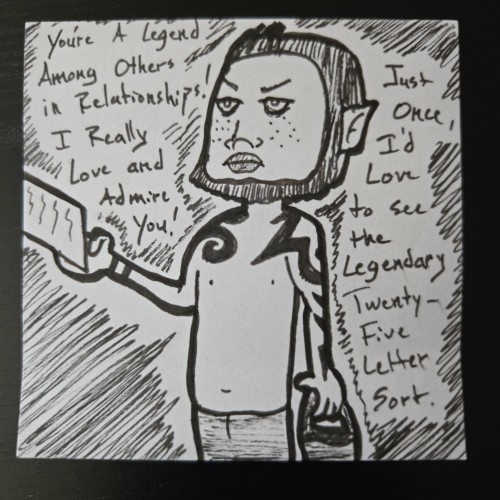 You're A Legend
Among Others
in Relationships!
I Really
Love and
Admire
You!
Just
Once,
I'd
Love
to see
the
Legendary
Twenty-
Five
Letter
Sort.